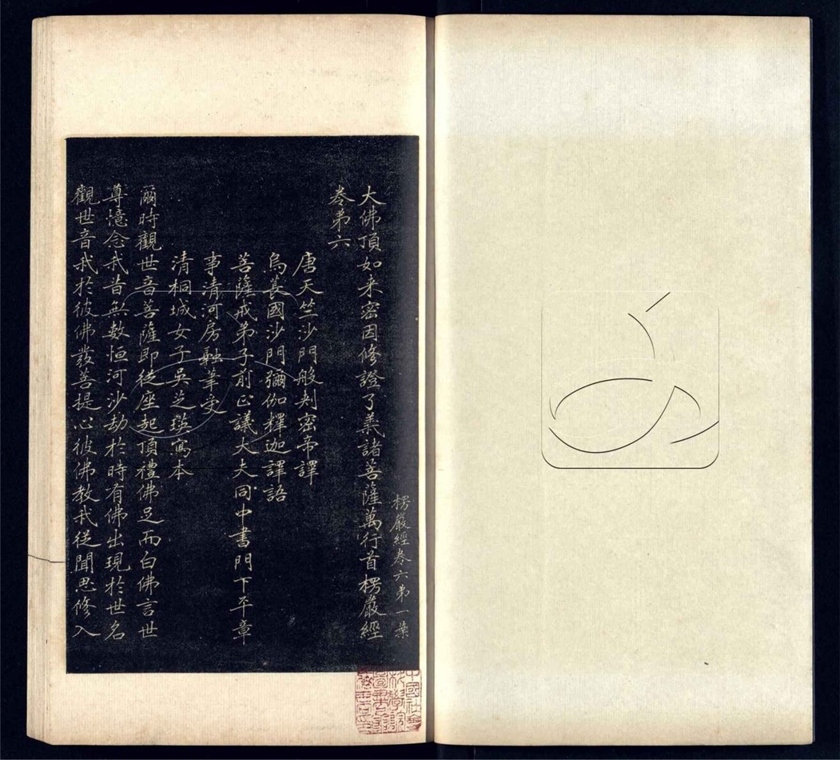 楞嚴經卷六第一葉
大佛頂如来密因修證了義諸菩薩萬行首楞嚴經
卷第六
唐天竺沙門般剌密帝譯
烏萇國沙門彌伽釋迦譯語
菩薩戒弟子前正議大夫同中書門下平章
事清河房融筆受
清桐城女子吳芝瑛寫本
爾時觀世音菩薩即從座起頂禮佛足而白佛言世
尊憶念我昔無數恒河沙劫於時有佛出現於世名
觀世音我於彼佛發菩提心彼佛教我從聞思修入